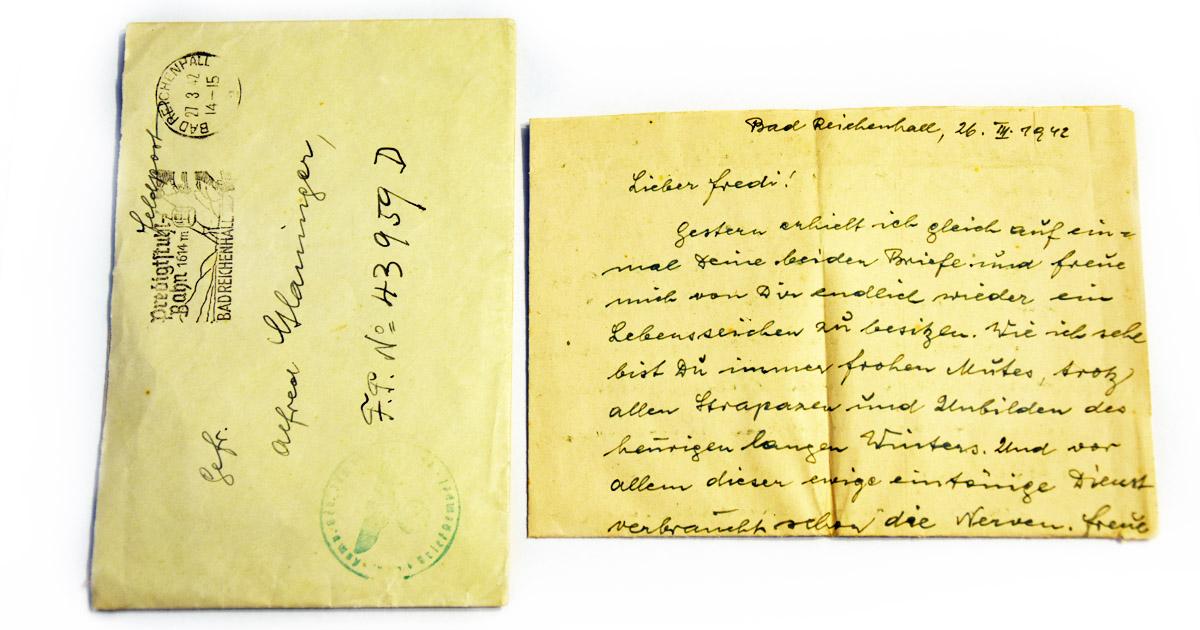 BAD REICHENHALL
27 3 42
14-15
Feldpost
Predigtstuhl-
Bahn 1614 m
BAD REICHENHALL
Gefr.
Alfred
F.P. No= 43959 D
Briefstempel
Bad Reichenhall, 26. III. 1942
Lieber Fredi!
Gestern erhielt ich gleich auf ein=
mal Deine beiden Briefe und freue
mich von Dir endlich wieder ein
Lebenszeichen zu besitzen. Wie ich sehe
bist Du immer frohen Mutes, trotz
allen Strapazen und Unbilden des
heurigen langen Winters. Und vor
allem dieser ewige eintönige Dienst
verbraucht schon die Nerven. Freue